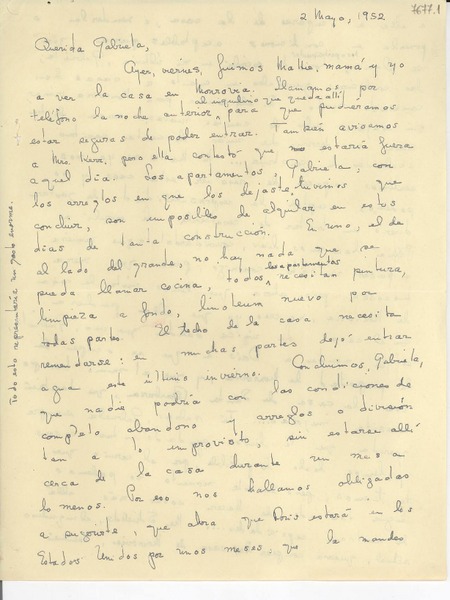 7677.1
2 Mayo, 1952
Querida Gabriela,
Ayer, viernes, fuimos Mathie, mamá y yo
a ver la casa en Monrovia. Llamamos por
teléfono la noche anterior al inquilino que queda allí, para que pudiéramos
estar seguras de poder entrar. También avisamos
a Mrs. Kerr, pero ella contestó que estaría fuera
aquel día. Los apartamentos, Gabriela, con
los arreglos en que los dejaste, tuvimos que
concluir, son imposibles de alquilar en estos
días de tanta construcción. En uno, el de
al lado del grande, no hay nada que se
pueda llamar cocina, todos los apartamentos necesitan pintura,
limpieza a fondo, linoleum nuevo por
todas partes. El techo de la casa necesita
remendarse: en muchas partes dejó entrar
agua este último invierno. Concluimos, Gabriela,
que nadie podría con las condiciones de
completo abandono y arreglos o división
tan a lo improvisto, sin estarse allí
cerca de la casa durante un mes a
lo menos. Por eso nos hallamos obligadas
a sugerirte, que ahora que Doris estará en los
Estados Unidos por unos meses, que la mandes
Todo esto representaría un gasto enorme.